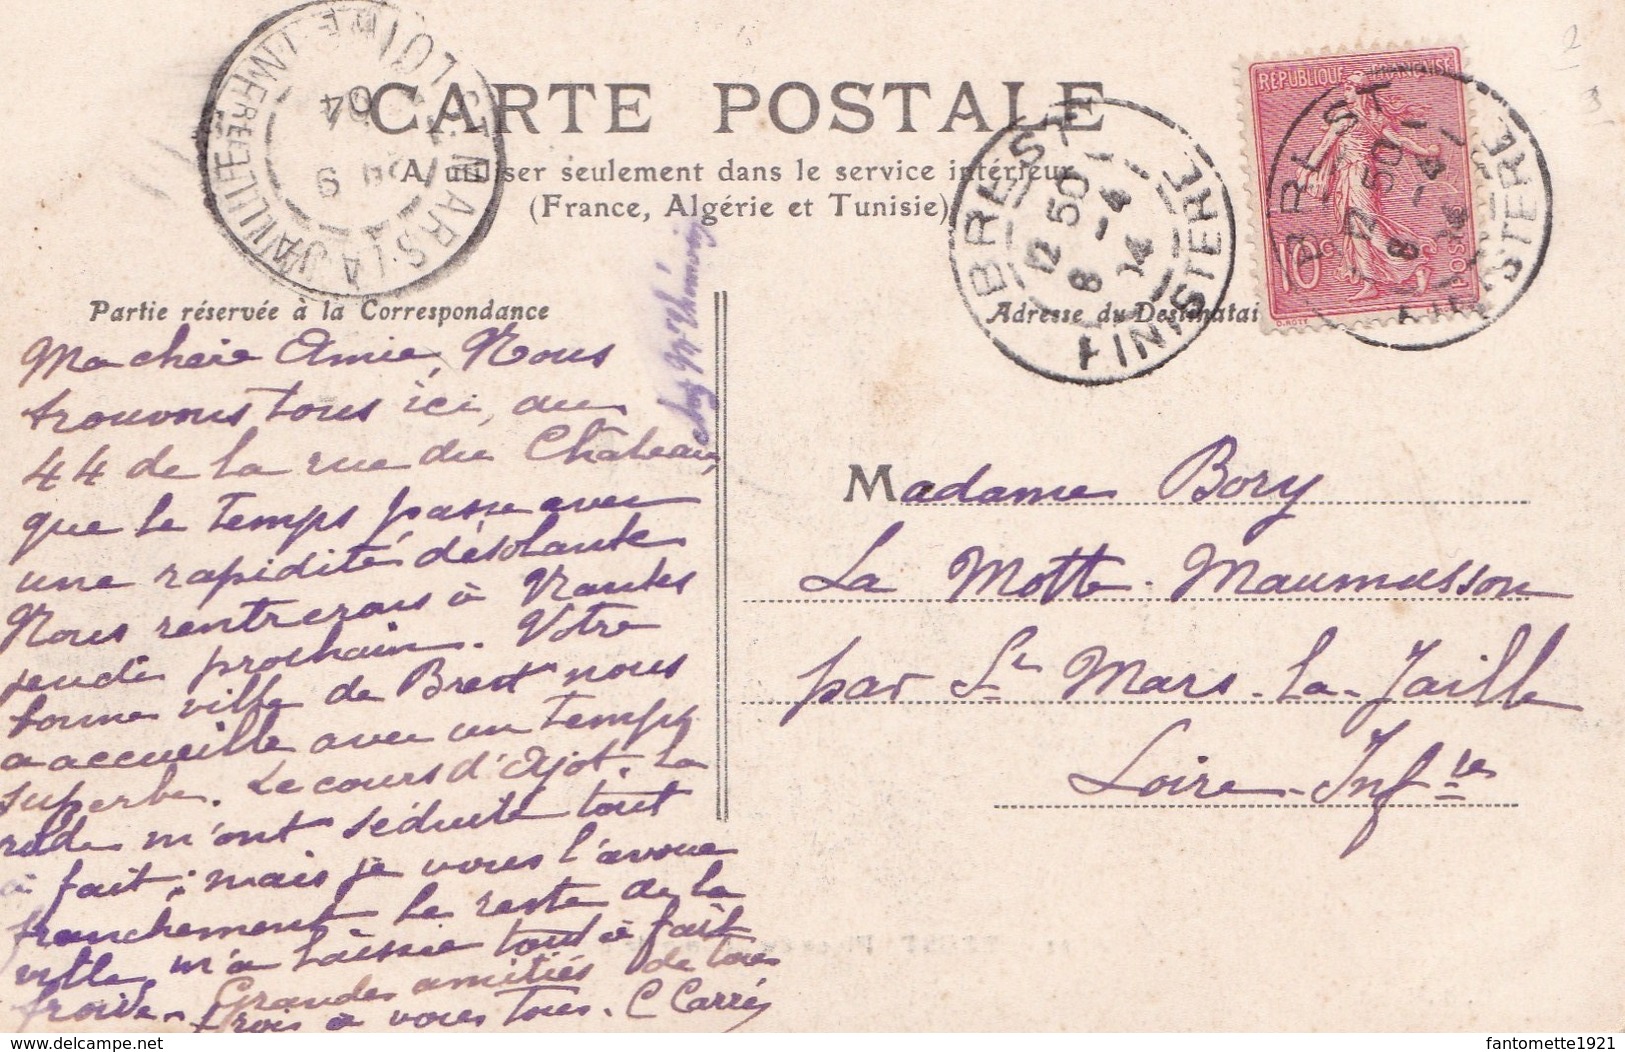 CARTE POSTALE
A utiliser seulement dans le service intérieur
(France, Algérie et Tunisie)
Partie réservée à la Correspondance
Adresse du Destinatai
Ma chère Amie, Nous
trouvons tous ici, au
44 de la rue du Château,
que le temps passe avec
une rapidité désolante
Nous rentrerons à Nantes
jeudi prochain. Votre
bonne ville de Brest nous
a accueilli avec un temps
superbe. Le cours d'Ajot, la
rade m'ont séduite tout
à fait; mais je vous l'avoue
franchement le reste de la
ville m'a laissée tout à fait
froide. Grandes amitiés de tous
trois à vous tous. C Carré
chez Mr Thémoin
Madame Bory
La Motte Maumusson
par St Mars-la-Jaille
Loire-Infre
REPUBLIQUE FRANÇAISE
10c
POSTES
BREST
12 50
8 -4
04
FINISTERE
BREST
12 50
8 -4
04
FINISTERE
ST MARS-LA-JAILLE
LOIRE INFERE
9
04
2
3
fantomette1921